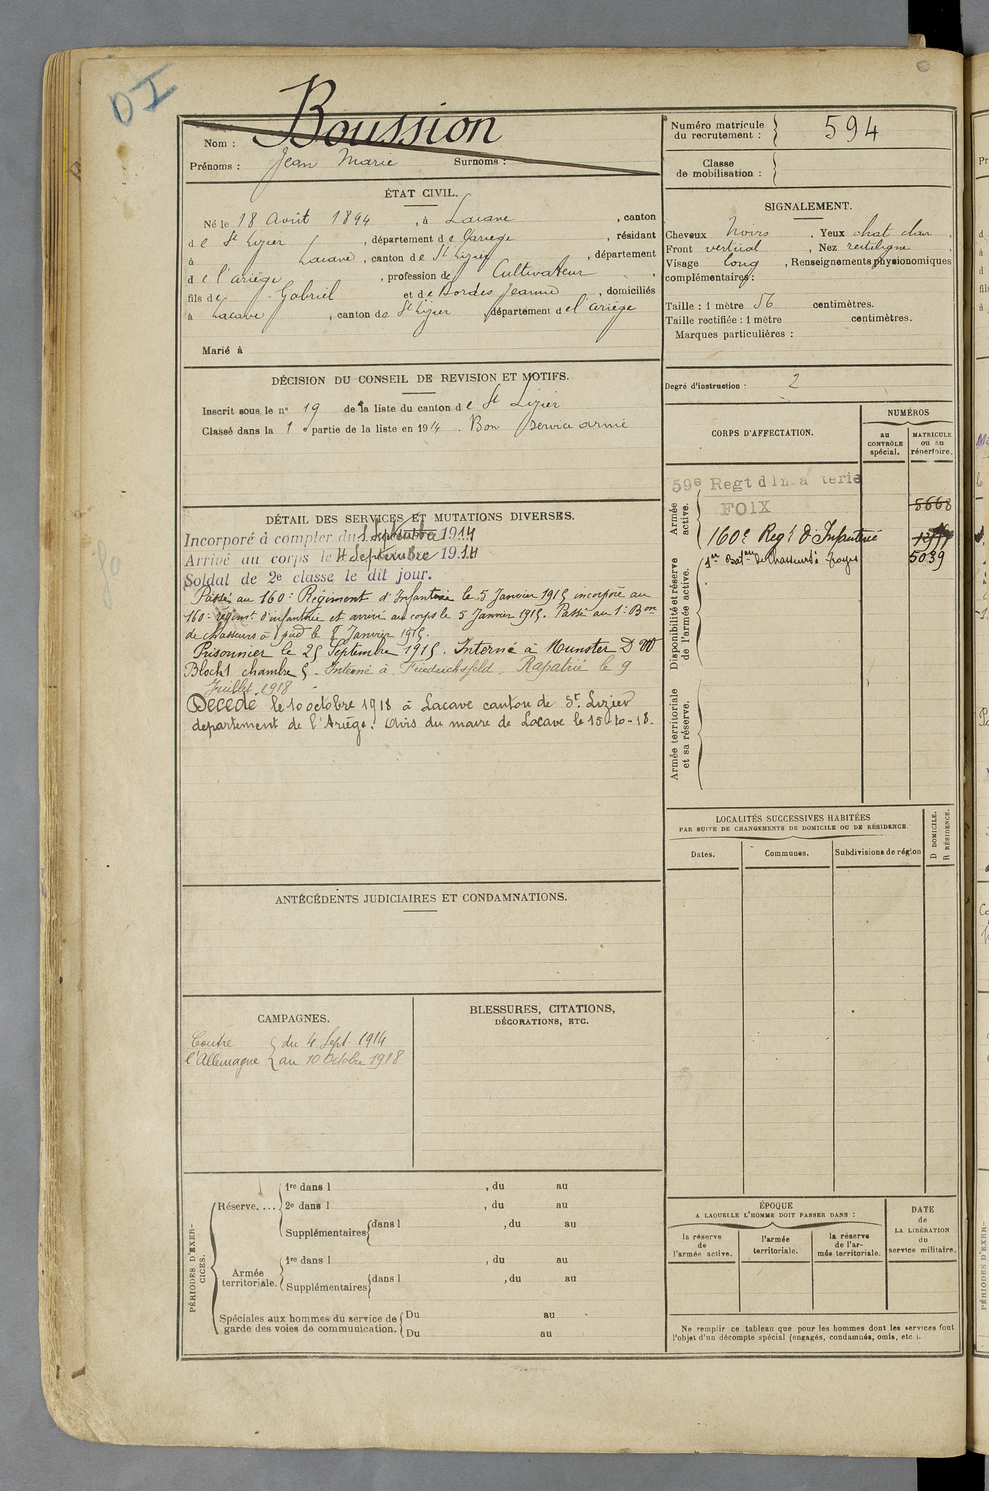 DI
Nom : Boussion
Prénoms : Jean Marie Surnoms :
Numéro matricule du recrutement : 594
Classe de mobilisation :
ÉTAT CIVIL.
Né le 18 Août 1894, à Lacave, canton
de St Lizier, département de l'ariège, résidant
à Lacave, canton de St Lizier, département
de l'ariège, profession de Cultivateur,
fils de Gabriel et de Bordes Jeanne, domiciliés
à Lacave, canton de St Lizier, département de l'ariège
Marié à
SIGNALEMENT.
Cheveux Noirs, Yeux chat clair,
Front vertical, Nez rectiligne,
Visage long, Renseignements physionomiques
complémentaires :
Taille : 1 mètre 56 centimètres.
Taille rectifiée : 1 mètre centimètres.
Marques particulières :
Degré d'instruction : 2
DÉCISION DU CONSEIL DE REVISION ET MOTIFS.
Inscrit sous le n° 19 de la liste du canton de St Lizier
Classé dans la 1e partie de la liste en 1914. Bon Service armé
DÉTAIL DES SERVICES ET MUTATIONS DIVERSES.
Incorporé à compter du 1 Septembre 1914
Arrivé au corps le 4 Septembre 1914
Soldat de 2e classe le dit jour.
Passé au 160e Régiment d'Infanterie le 5 Janvier 1915 incorporé au
160e régiment d'infanterie et arrivé au corps le 5 Janvier 1915. Passé au 1e Bon
de chasseurs à pied le Janvier 1915.
Prisonnier le 25 Septembre 1915. Interné à Munster D W
Block 1 chambre 5 - Interné à Friedrichsfeld - Rapatrié le 9
Juillet 1918
Décédé le 10 octobre 1918 à Lacave canton de St Lizier
département de l'Ariège. Avis du maire de Lacave le 15-10-18.
CORPS D'AFFECTATION.
NUMÉROS
au CONTRÔLE spécial.
MATRICULE ou au répertoire.
Armée active.
59e Regt d'Infanterie
FOIX
5668
160e Regt d'Infanterie
1er Baton de Chasseurs à pied
5039
Disponibilité et réserve de l'armée active.
Armée territoriale et sa réserve.
LOCALITÉS SUCCESSIVES HABITÉES
PAR SUITE DE CHANGEMENTS DE DOMICILE OU DE RÉSIDENCE.
Dates.
Communes.
Subdivisions de région
D DOMICILE.
R RÉSIDENCE.
ANTÉCÉDENTS JUDICIAIRES ET CONDAMNATIONS.
CAMPAGNES.
Contre l'Allemagne
du 4 Sept 1914
au 10 Octobre 1918
BLESSURES, CITATIONS,
DÉCORATIONS, ETC.
PÉRIODES D'EXERCICES.
Réserve....
1re dans l , du au
2e dans l , du au
Supplémentaires dans l , du au
Armée territoriale.
1re dans l , du au
Supplémentaires dans l , du au
Spéciales aux hommes du service de garde des voies de communication.
Du au
Du au
ÉPOQUE
A LAQUELLE L'HOMME DOIT PASSER DANS :
la réserve de l'armée active.
l'armée territoriale.
la réserve de l'armée territoriale.
DATE de LA LIBÉRATION du service militaire.
Ne remplir ce tableau que pour les hommes dont les services font
l'objet d'un décompte spécial (engagés, condamnés, omis, etc.).